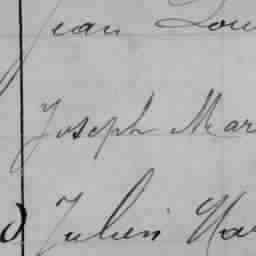 Jean Lou
Joseph Mar
Julien Mar